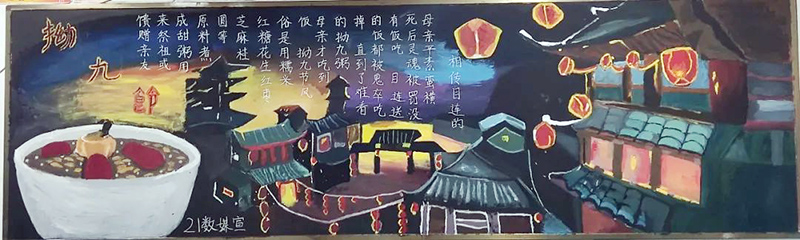 拗九節
相传目连的
母亲平素蛮横
死后灵魂被罚没
有饭吃 目连送
的饭都被鬼卒吃
掉 直到了难有
的拗九粥
母亲才吃到
饭 拗九节风
俗是用糯米
红糖花生红枣
芝麻桂
圆等
原料煮
成甜粥用
来祭祖或
馈赠亲友
21数媒宣